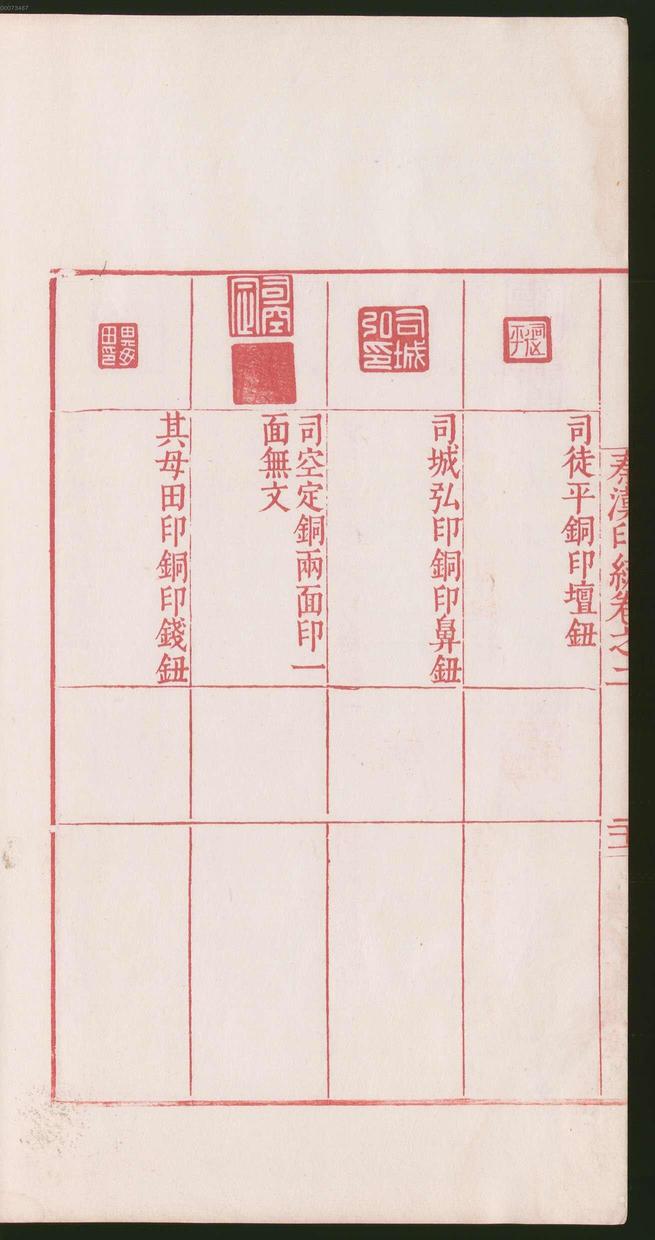 00073467
秦漢印統卷之二
司徒平銅印壇鈕
司城弘印銅印鼻鈕
司空定銅兩面印一
面無文
其母田印銅印錢鈕
司城弘印
司空定